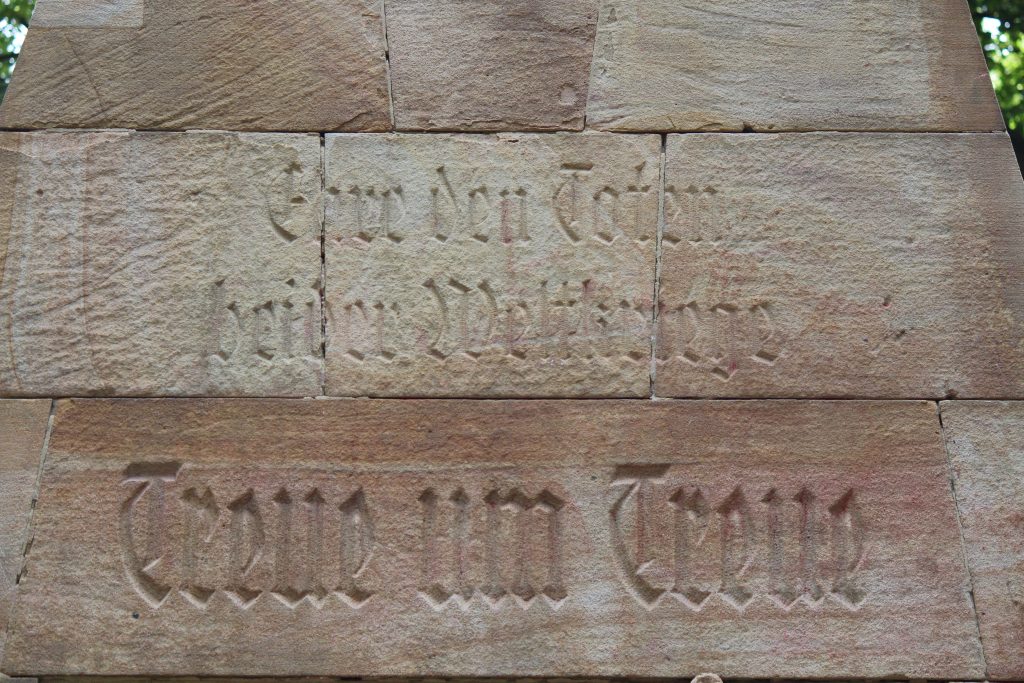 Ehre den Toten
beider Weltkriege
Treue um Treue